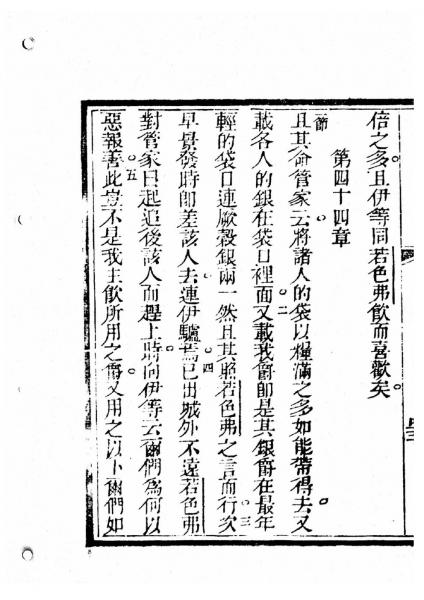 倍之多。且伊等同若色弗飲而喜歡矣。
第四十四章
節
且其命管家云。將諸人的袋以糧滿之多如能帶得去。又
載各人的銀在袋口裡面。二又載我爵即是其銀爵在最年
輕的袋口連厥穀銀兩一然。且其照若色弗之言而行。三次
早景發時即差該人去。連伊驢焉。四已出城外不遠若色弗
對管家曰。起追後該人而趕上時。向伊等云。爾們為何以
惡報善。五此豈不是我主飲所用之爵。又用之以卜。爾們如